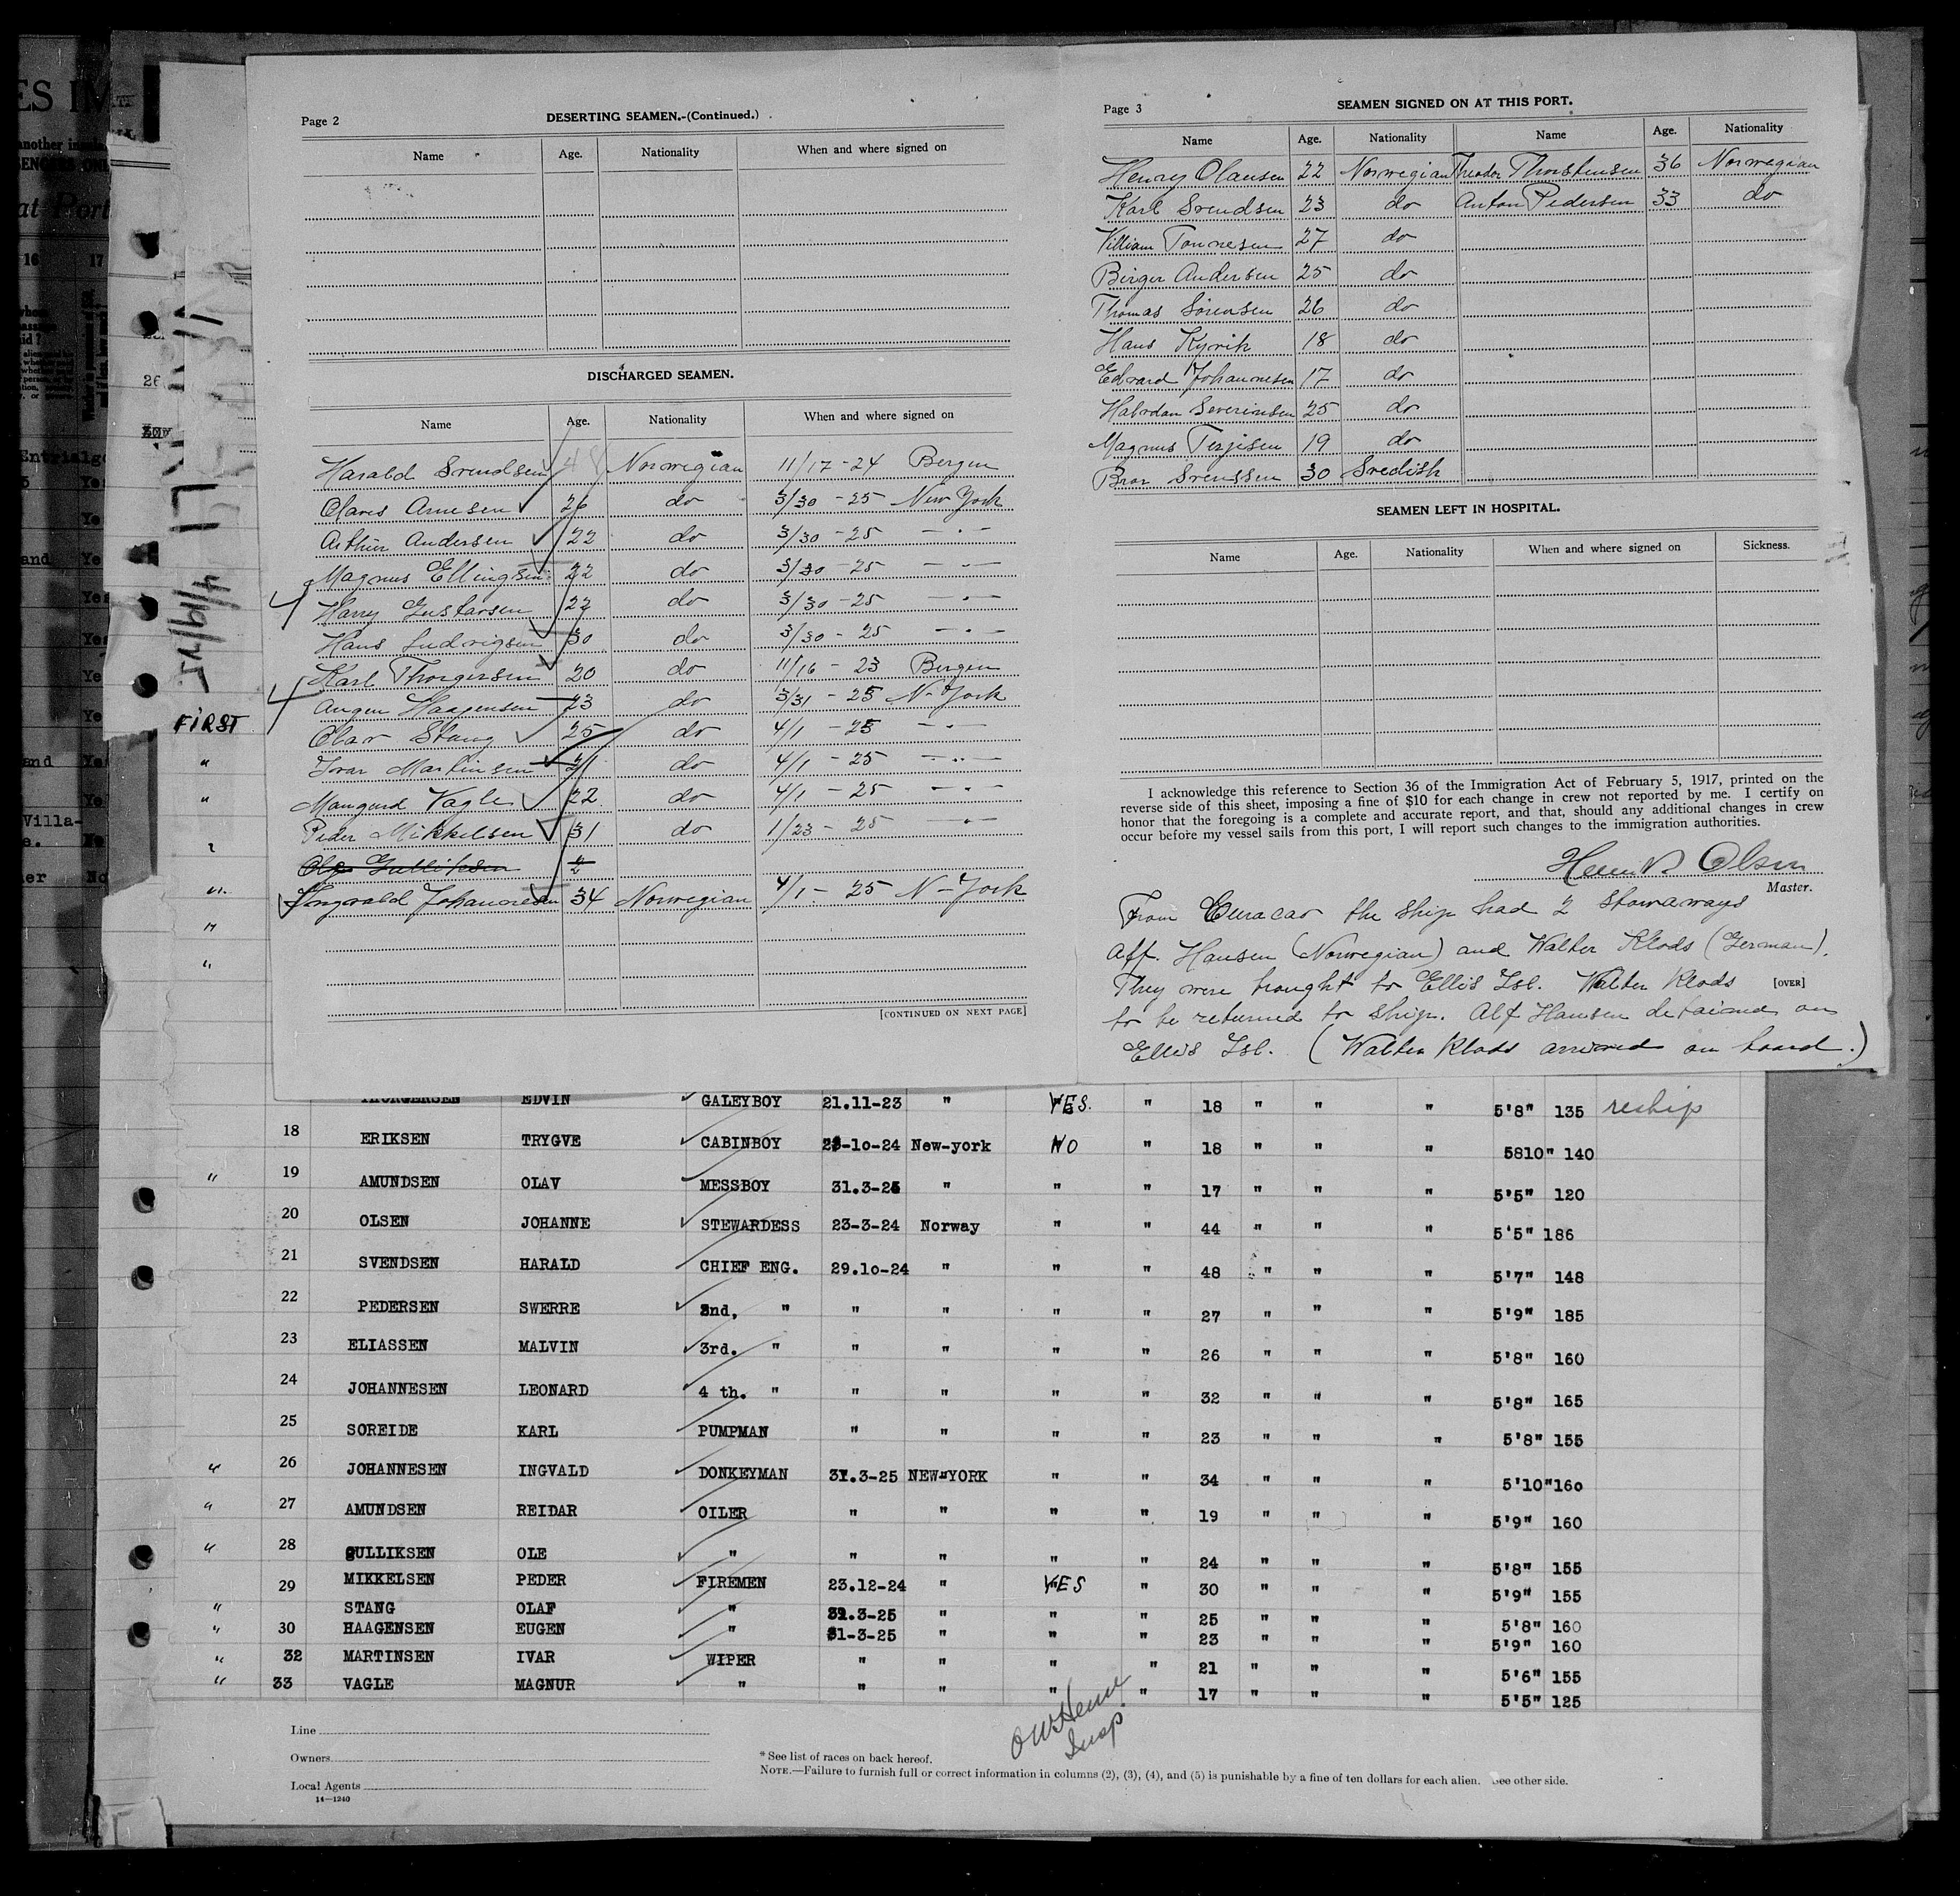 Page 2 DESERTING SEAMEN.-(Continued.)
Name Age. Nationality When and where signed on
DISCHARGED SEAMEN.
Name Age. Nationality When and where signed on
Harald Svendsen 48 Norwegian 11/17-24 Bergen
Olaves Arnesen 26 do 3/30-25 New York
Arthur Andersen 22 do 3/30-25 — " —
Magnus Ellingsen 22 do 3/30-25 — " —
Harry Gustavsen 22 do 3/30-25 — " —
Hans Ludvigsen 30 do 3/30-25 — " —
Karl Thorgersen 20 do 11/16-23 Bergen
Augen Haagensen 23 do 3/31-25 N-York
Olav Stang 25 do 4/1-25 — " —
Ivar Martinsen 21 do 4/1-25 — " —
Mangurd Vagle 22 do 4/1-25 — " —
Peder Mikkelsen 31 do 1/23-25 — " —
Ole Gulliksen 2
Ingvald Johannesen 34 Norwegian 4/1-25 N-York
[CONTINUED ON NEXT PAGE]
Page 3 SEAMEN SIGNED ON AT THIS PORT.
Name Age. Nationality Name Age. Nationality
Henry Olausen 22 Norwegian Theodor Thorstensen 36 Norwegian
Karl Svendsen 23 do Anton Pedersen 33 do
William Tonnesen 27 do
Birger Andersen 25 do
Thomas Sörensen 26 do
Hans Kyvik 18 do
Edvard Johannesen 17 do
Halvdan Severinsen 25 do
Magnus Terjesen 19 do
Bror Svenssen 30 Svedish
SEAMEN LEFT IN HOSPITAL.
Name Age. Nationality When and where signed on Sickness.
I acknowledge this reference to Section 36 of the Immigration Act of February 5, 1917, printed on the
reverse side of this sheet, imposing a fine of $10 for each change in crew not reported by me. I certify on
honor that the foregoing is a complete and accurate report, and that, should any additional changes in crew
occur before my vessel sails from this port, I will report such changes to the immigration authorities.
Olsen
Master.
From Curacao the ship had 2 stowaways
Alf. Hansen (Norwegian) and Walter Klods (German).
They were brought to Ellis Isl. Walter Klods
[OVER]
to be returned to ship. Alf Hansen detained on
Ellis Isl. (Walter Klods arrived on board.)
FIRST
THORGERSEN EDVIN GALEYBOY 21.11-23 " YES. " 18 " " " 5'8" 135 reship
18 ERIKSEN TRYGVE CABINBOY 28-10-24 New-york NO " 18 " " " 5810" 140
" 19 AMUNDSEN OLAV MESSBOY 31.3-25 " " " 17 " " " 5'5" 120
20 OLSEN JOHANNE STEWARDESS 23-3-24 Norway " " 44 " " " 5'5" 186
21 SVENDSEN HARALD CHIEF ENG. 29.10-24 " " " 48 " " " 5'7" 148
22 PEDERSEN SWERRE 2nd. " " " " " 27 " " " 5'9" 185
23 ELIASSEN MALVIN 3rd. " " " " " 26 " " " 5'8" 160
24 JOHANNESEN LEONARD 4 th. " " " " " 32 " " " 5'8" 165
25 SOREIDE KARL PUMPMAN " " " " 23 " " " 5'8" 155
" 26 JOHANNESEN INGVALD DONKEYMAN 31.3-25 NEW-YORK " " 34 " " " 5'10" 160
" 27 AMUNDSEN REIDAR OILER " " " " 19 " " " 5'9" 160
" 28 GULLIKSEN OLE " " " " " 24 " " " 5'8" 155
29 MIKKELSEN PEDER FIREMEN 23.12-24 " YES " 30 " " " 5'9" 155
" STANG OLAF " 31.3-25 " " " 25 " " " 5'8" 160
" 30 HAAGENSEN EUGEN " 31-3-25 " " " 23 " " " 5'9" 160
" 32 MARTINSEN IVAR WIPER " " " " 21 " " " 5'6" 155
" 33 VAGLE MAGNUR " " " " " 17 " " " 5'5" 125
Insp.
Line
Owners
Local Agents
14—1240
* See list of races on back hereof.
NOTE.—Failure to furnish full or correct information in columns (2), (3), (4), and (5) is punishable by a fine of ten dollars for each alien. See other side.